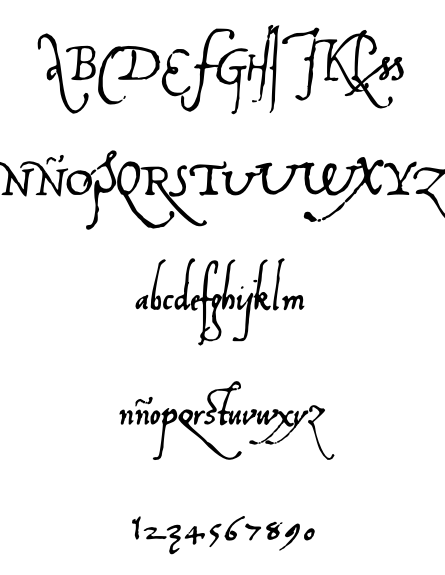 ABCDEFGHIJKLss
NÑOPQRSTUVWXYZ
abcdefghijklm
nñopqrstuvwxyz
1234567890